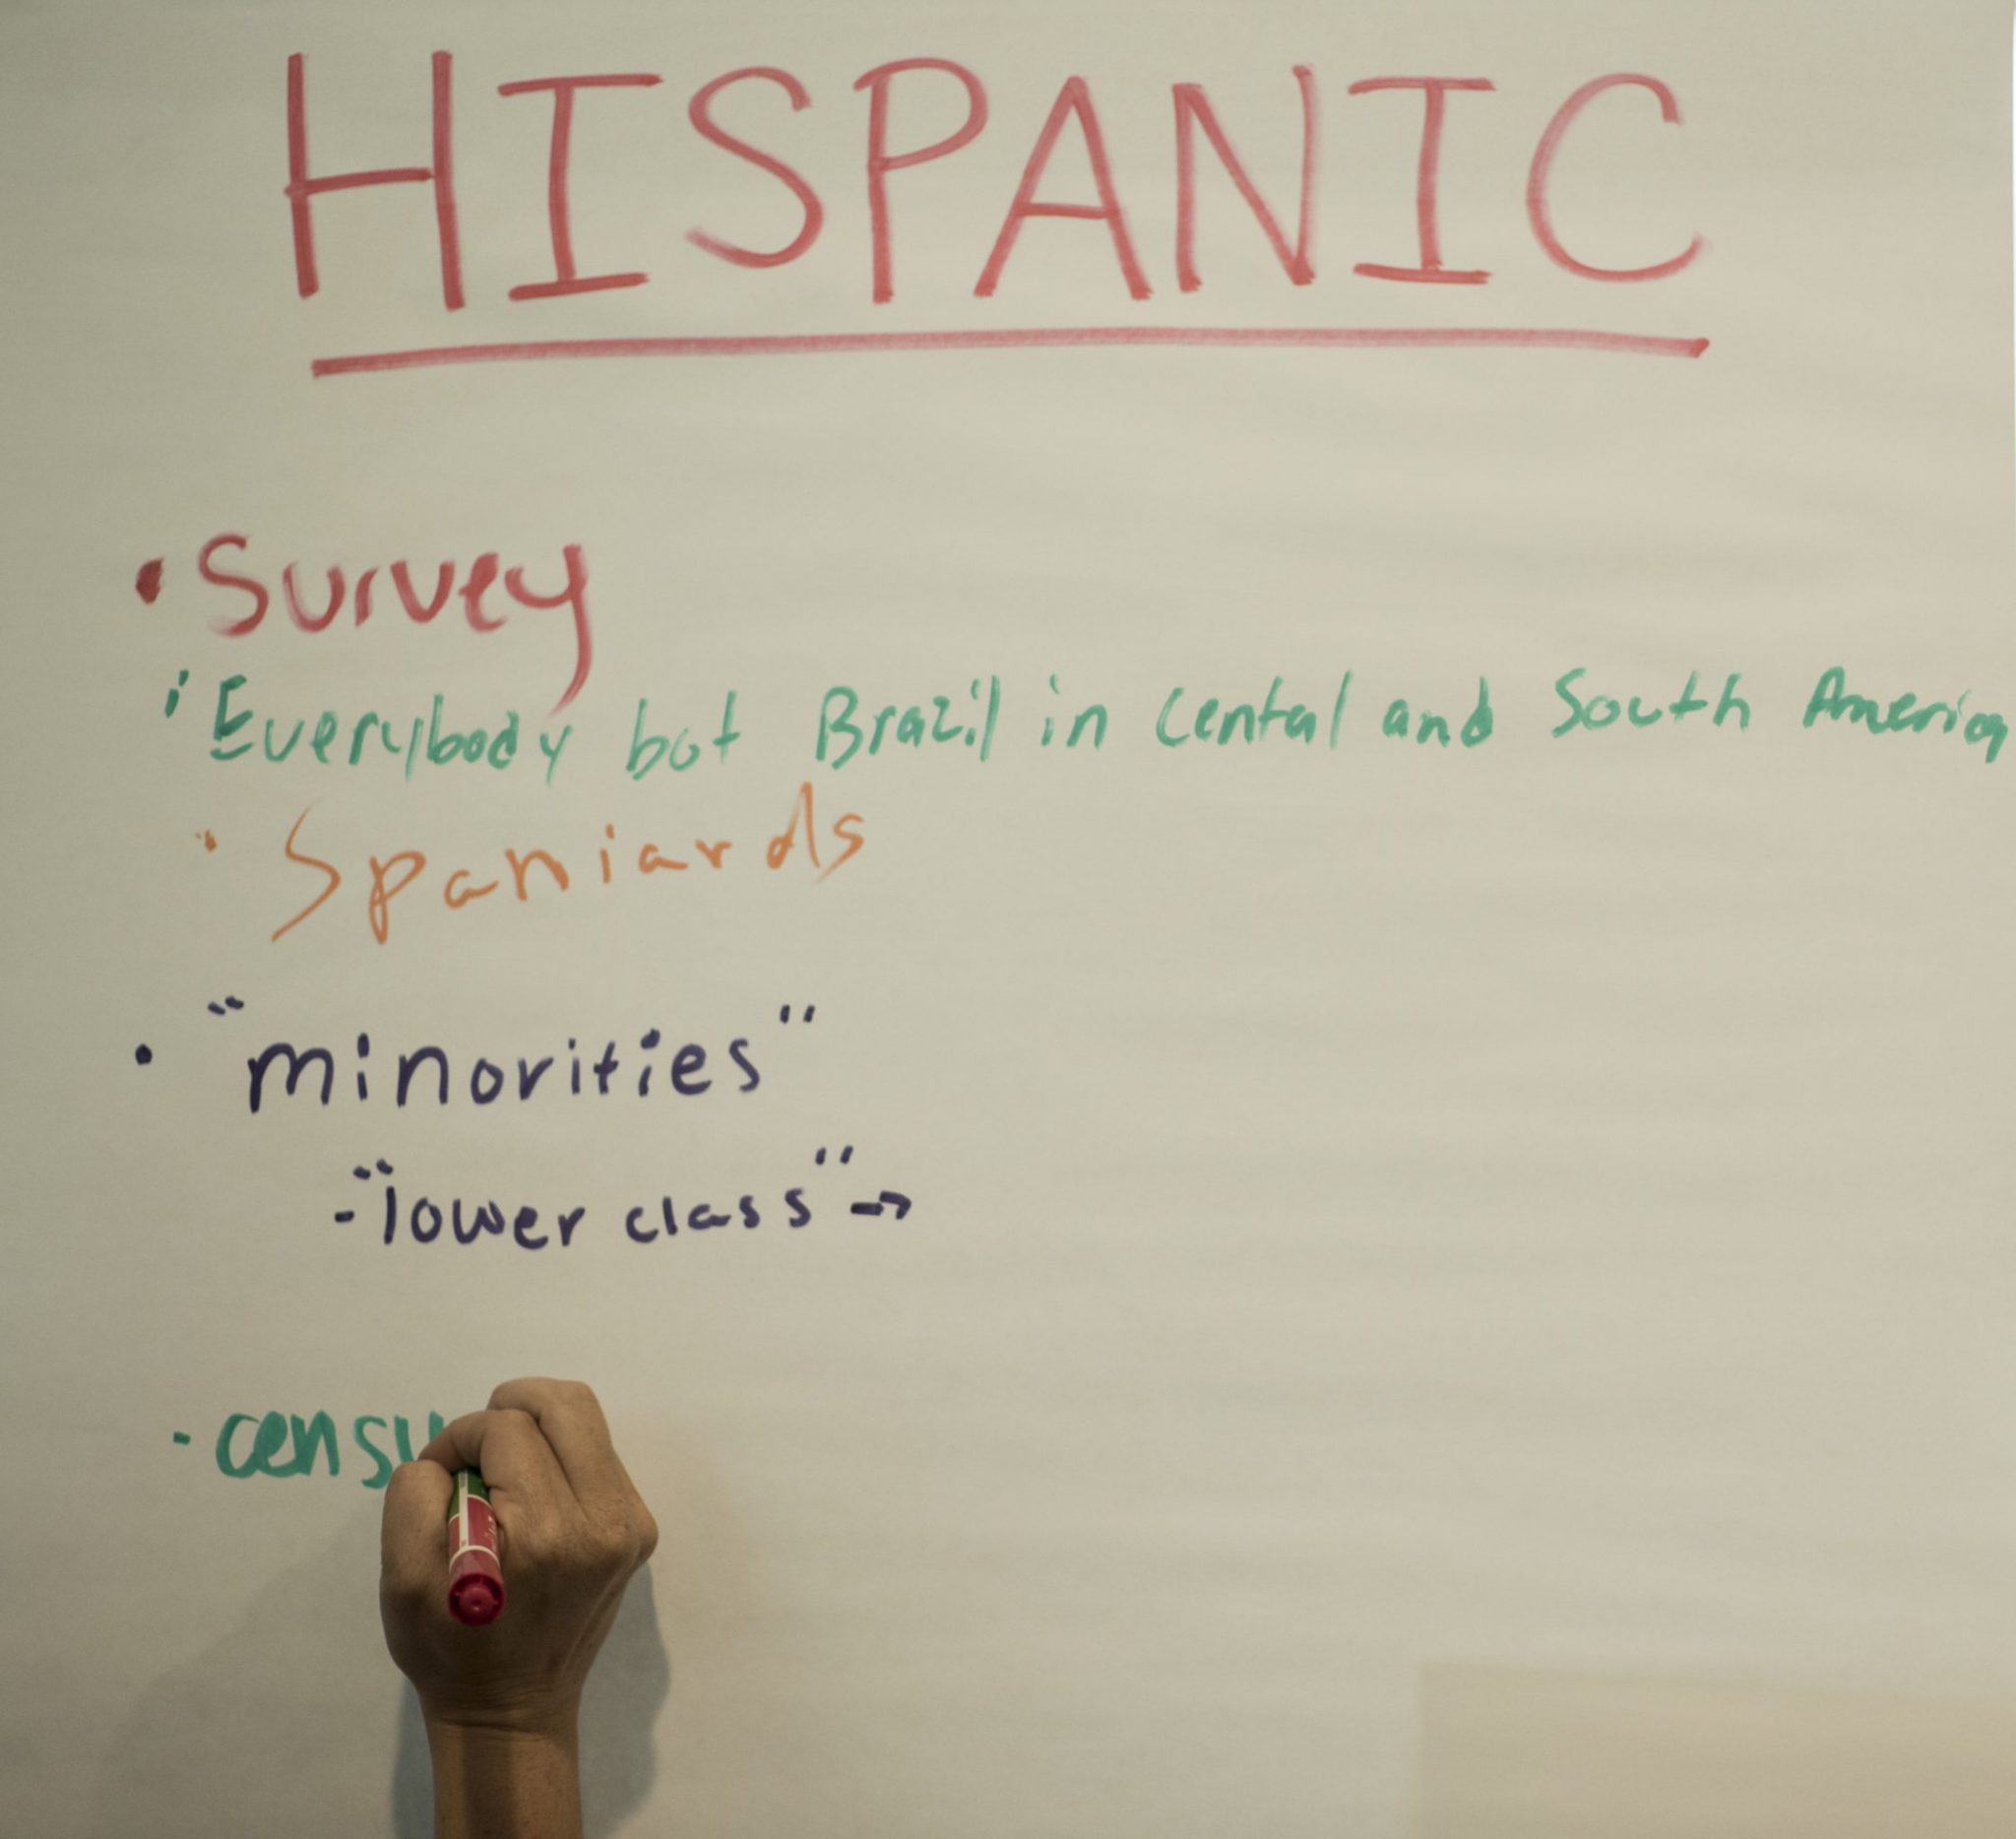 HISPANIC
• Survey
• Everybody but Brazil in Cental and South America
• Spaniards
• "minorities"
-"lower class" →
- censu